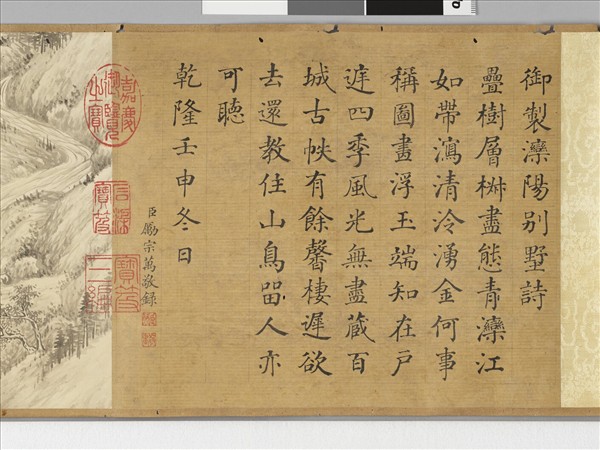 御製灤陽別墅詩
疊樹層楙盡態青灤江
如帶瀉清泠湧金何事
稱圖畫浮玉端知在戶
庭四季風光無盡藏百
城古帙有餘馨棲遲欲
去還教住山鳥留人亦
可聽
乾隆壬申冬日
臣勵宗萬敬錄
嘉慶御覽之寶
石渠寶笈
寶笈三編